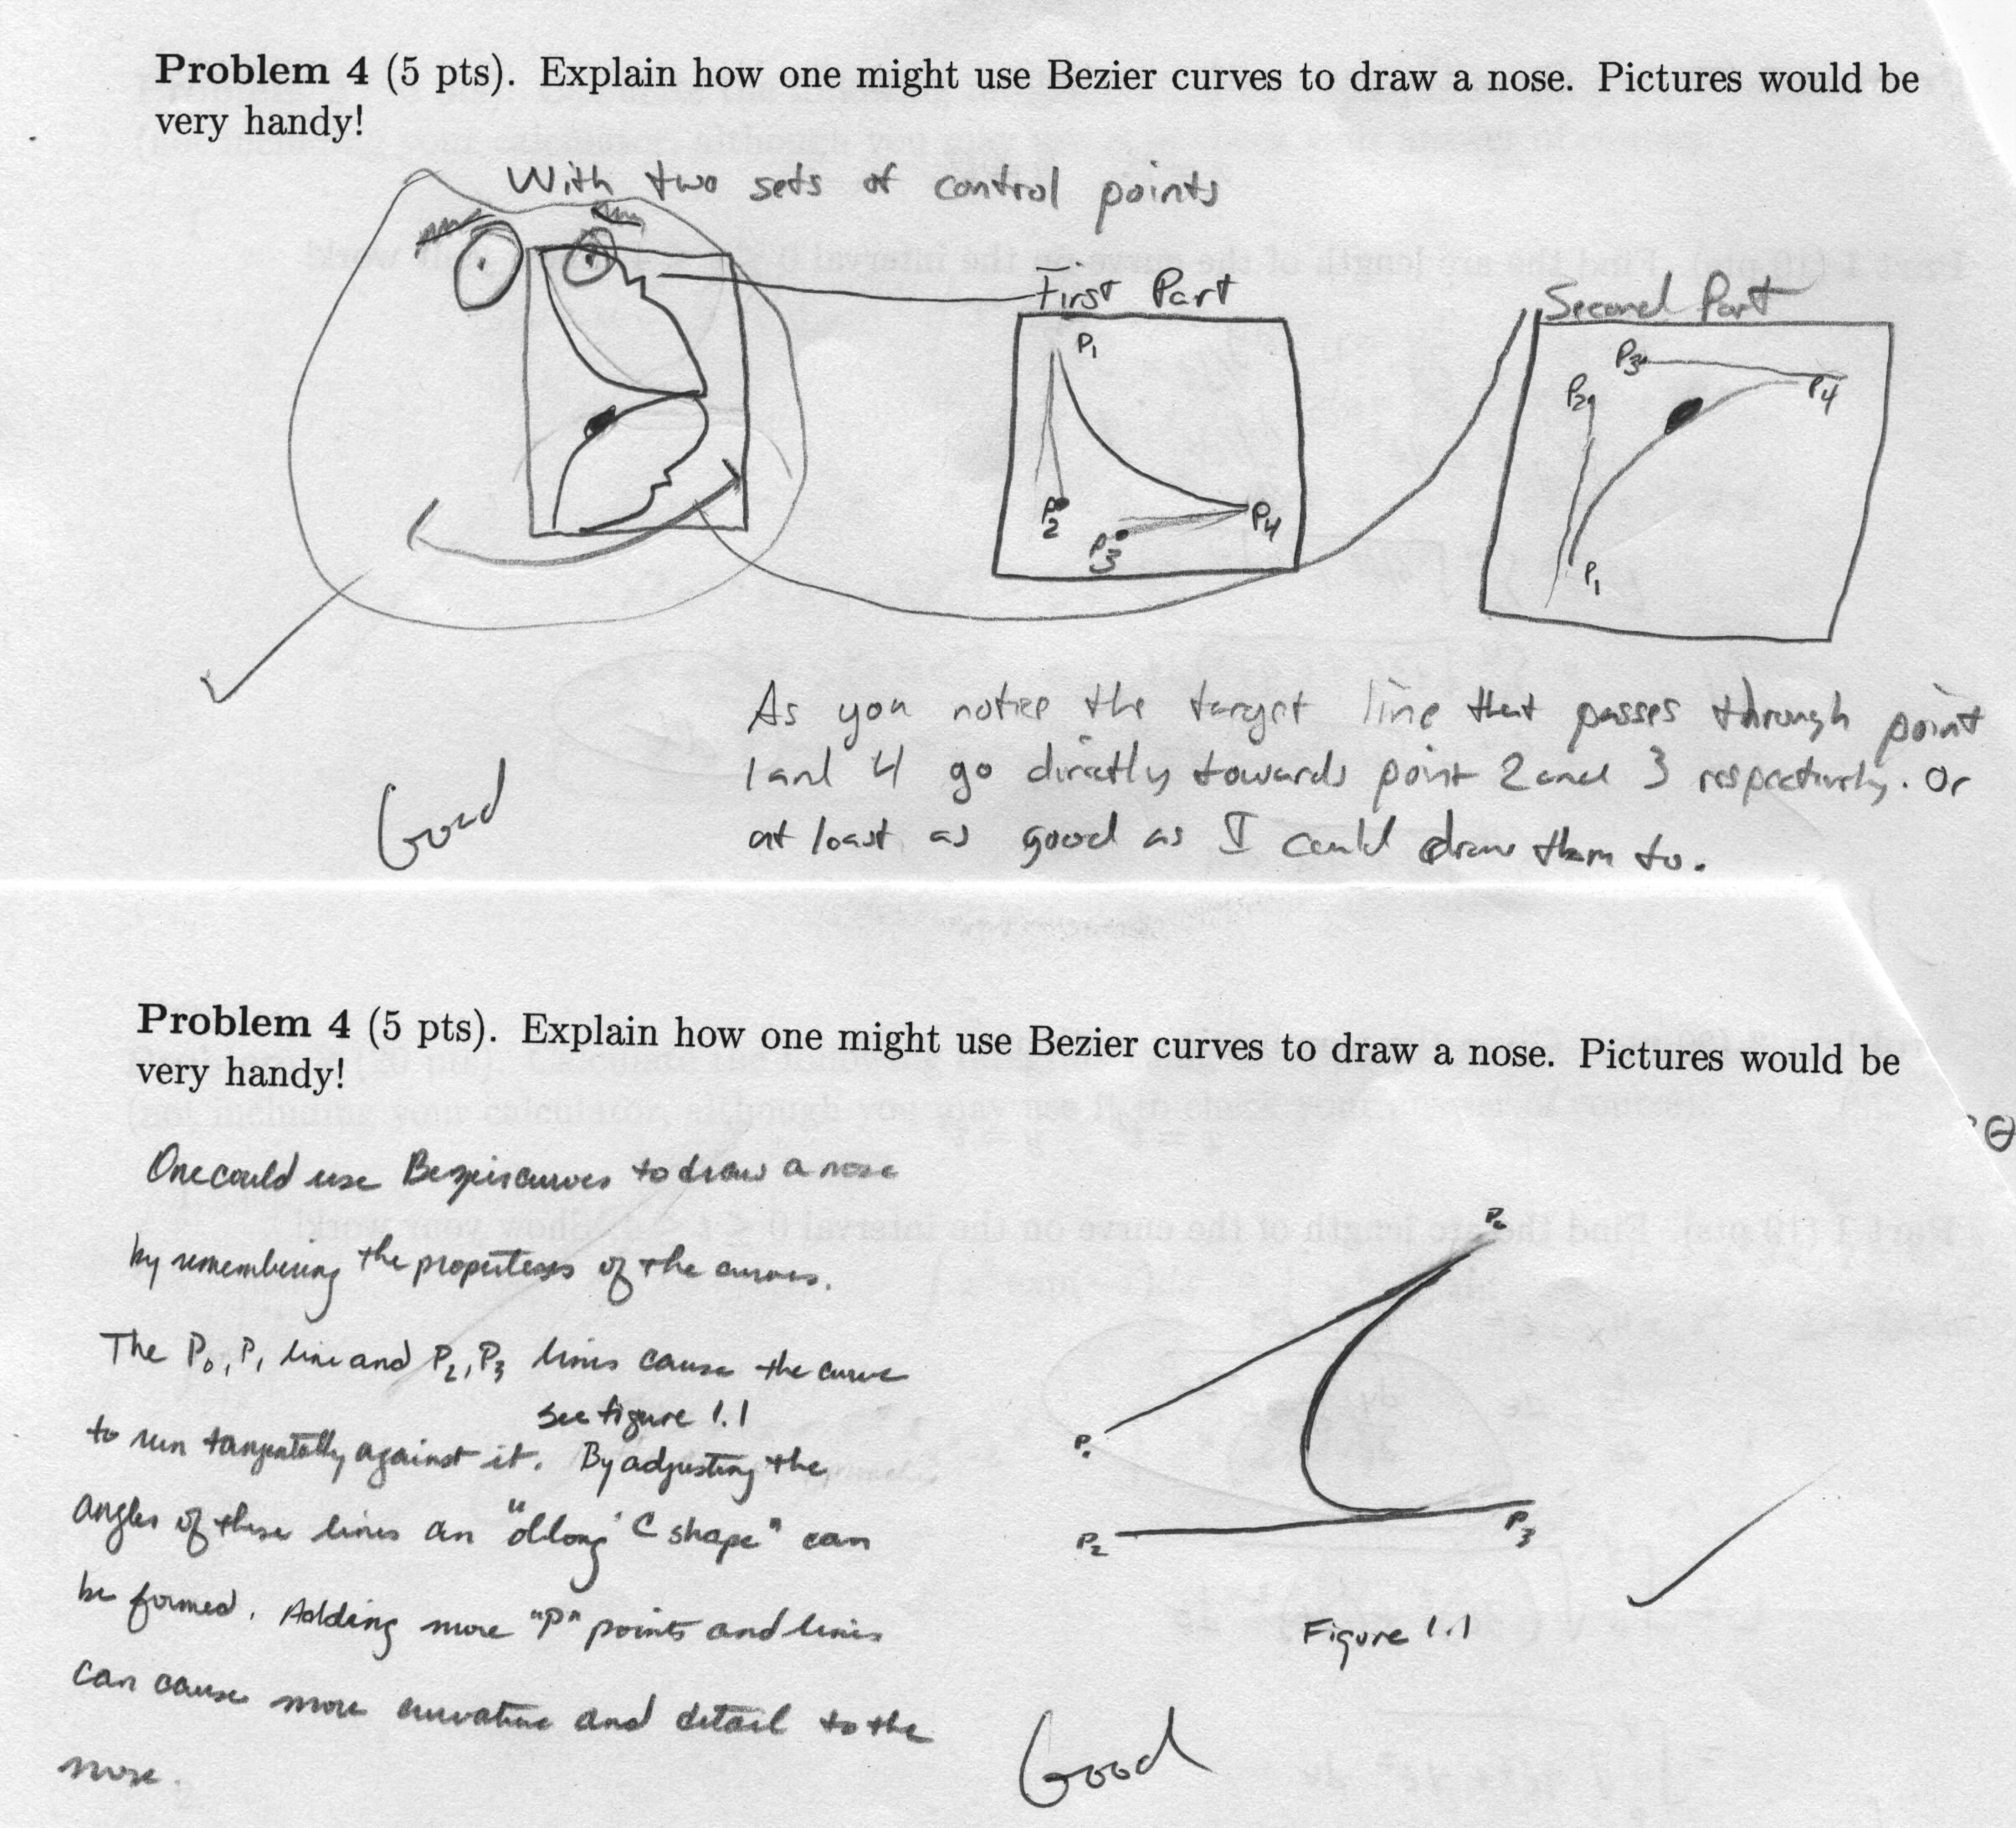 Problem 4 (5 pts). Explain how one might use Bezier curves to draw a nose. Pictures would be
very handy!
With two sets of control points
First Part
P1
P2
P3
P4
Second Part
P3
P2
P4
P1
As you notice the target line that passes through point
1 and 4 go directly towards point 2 and 3 respectively. Or
at least as good as I could draw them to.
Good
Problem 4 (5 pts). Explain how one might use Bezier curves to draw a nose. Pictures would be
very handy!
One could use Bezeir curves to draw a nose
by remembering the propertesys of the curves.
The P0, P1 line and P2, P3 lines cause the curve
see figure 1.1
to run tangentally against it. By adjusting the
angles of these lines an "oblong C shape" can
be formed. Adding more "P" points and lines
can cause more curvature and detail to the
nose.
P0
P1
P2
P3
Figure 1.1
Good
θ